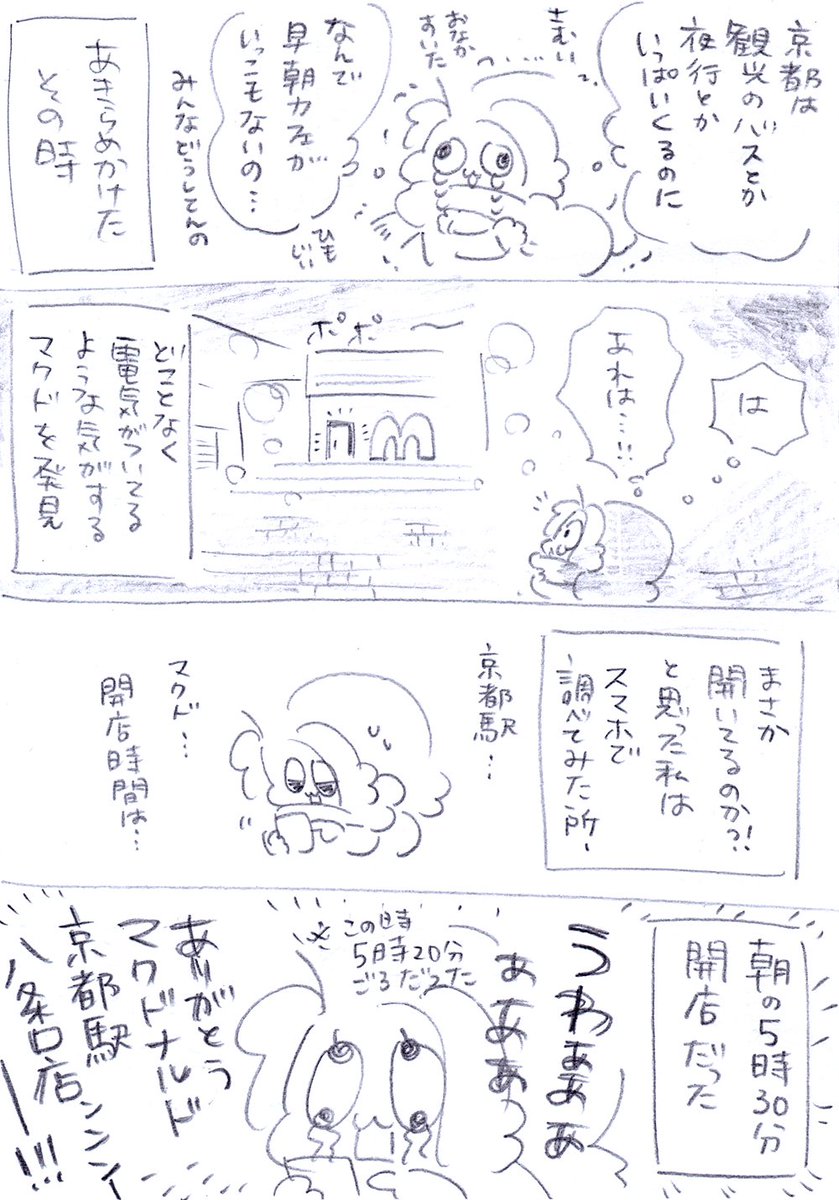 京都は
観光のバスとか
夜行とか
いっぱいくるのに
さむい
おなか
すいた
なんで
早朝カフェが
いっこもないの…
ひも
じい
みんなどうしてんの
あきらめかけた
その時
は
あれは…!!
ポポ〜
どことなく
電気がついてる
ような気がする
マクドを発見
まさか
開いてるのか?!
と思った私は
スマホで
調べてみた所、
京都駅…
マクド…
開店時間は…
朝の5時30分
開店だった
うわぁぁぁ
ぁぁぁ
※この時
5時20分
ごろだった
ありがとう
マクドナルド
京都駅
八条口店ンンンー!!!